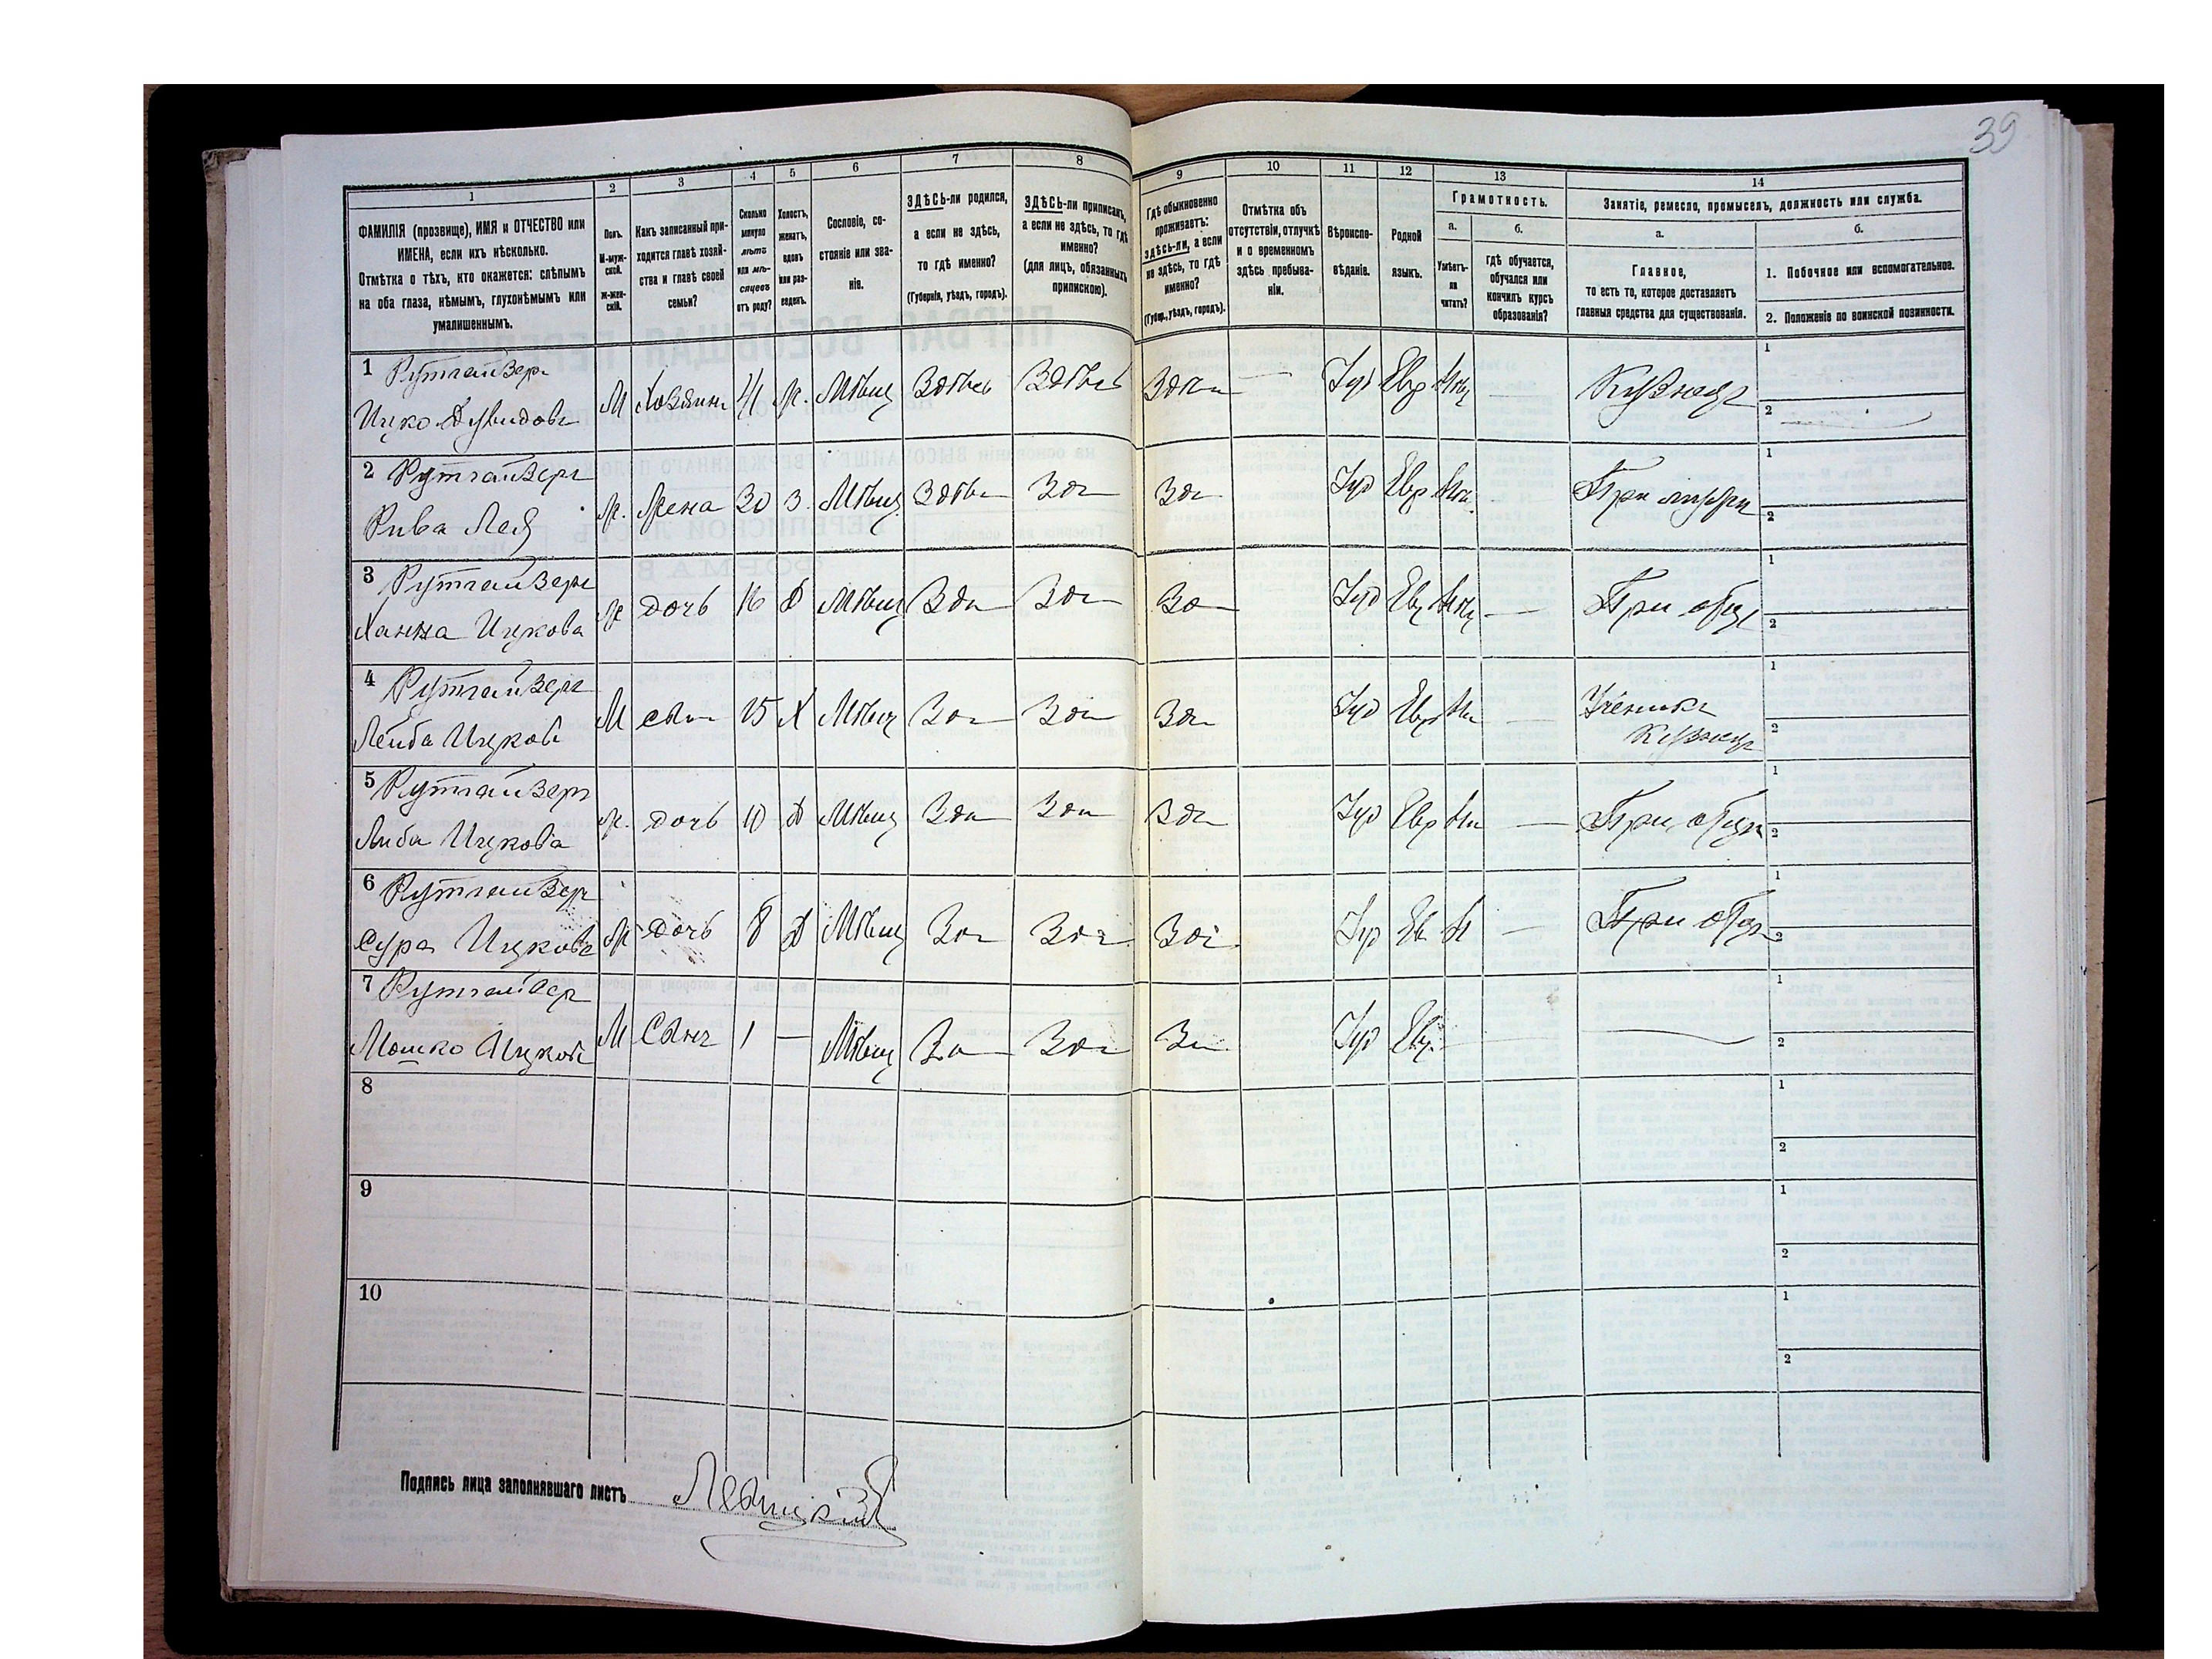 39
1 2 3 4 5 6 7 8 9 10 11 12 13 14
ФАМИЛІЯ (прозвище), ИМЯ и ОТЧЕСТВО или
ИМЕНА, если ихъ нѣсколько.
Отмѣтка о тѣхъ, кто окажется: слѣпымъ
на оба глаза, нѣмымъ, глухонѣмымъ или
умалишеннымъ.
Полъ.
М-муж-
ской.
Ж-жен-
скій.
Какъ записанный при-
ходится главѣ хозяй-
ства и главѣ своей
семьи?
Сколько
минуло
лѣтъ
или мѣ-
сяцевъ
отъ роду?
Холостъ,
женатъ,
вдовъ
или раз-
веденъ.
Сословіе, со-
стояніе или зва-
ніе.
ЗДѢСЬ-ли родился,
а если не здѣсь,
то гдѣ именно?
(Губернія, уѣздъ, городъ).
ЗДѢСЬ-ли приписанъ,
а если не здѣсь, то гдѣ
именно?
(для лицъ, обязанныхъ
припискою).
Гдѣ обыкновенно
проживаетъ:
здѣсь-ли, а если
не здѣсь, то гдѣ
именно?
(Губер., уѣздъ, городъ).
Отмѣтка объ
отсутствіи, отлучкѣ
и о временномъ
здѣсь пребыва-
ніи.
Вѣроиспо-
вѣданіе.
Родной
языкъ.
Грамотность.
а.
Умѣетъ-
ли
читать?
б.
гдѣ обучается,
обучался или
кончилъ курсъ
образованія?
Занятіе, ремесло, промыселъ, должность или служба.
а.
Главное,
то есть то, которое доставляетъ
главныя средства для существованія.
б.
1. Побочное или вспомогательное.
2. Положеніе по воинской повинности.
1 Рутгайзеръ М Хозяинъ 41 Ж. Мѣщ Здѣсь Здѣсь Іуд Евр Кузнецъ 1
Ицко Дувидовъ 2
2 Рутгайзеръ Ж. Жена 30 З. Мѣщ Іуд Евр При мужѣ 1
Рива Лея 2
3 Рутгайзеръ Ж дочь 16 Д Мѣщ Іуд Евр При отцѣ 1
Ханна Ицкова 2
4 Рутгайзеръ М сынъ 15 Х Мѣщ Іуд Евр Ученикъ 1
Лейба Ицковъ Кузнеца 2
5 Рутгайзеръ Ж. дочь 10 Д Мѣщ Іуд Евр При отцѣ 1
Либа Ицкова 2
6 Рутгайзеръ Ж дочь 8 Д Мѣщ Іуд Ев При отцѣ 1
Сура Ицкова 2
7 Рутгайзеръ М Сынъ 1 — Мѣщ Іуд Евр. 1
Мошко Ицковъ 2
8 1
2
9 1
2
10 1
2
Подпись лица заполнявшаго листъ Левицкій